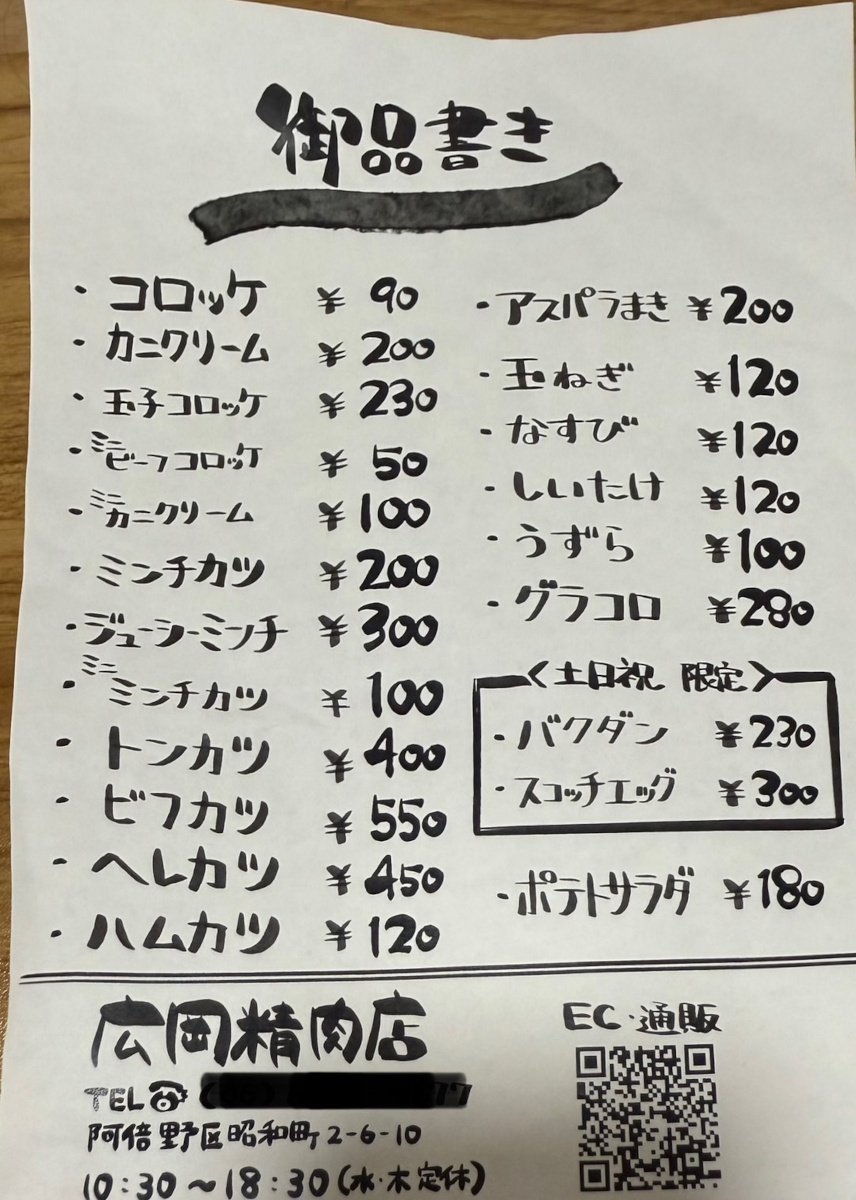 御品書き
・コロッケ ¥90
・カニクリーム ¥200
・玉子コロッケ ¥230
・ミニビーフコロッケ ¥50
・ミニカニクリーム ¥100
・ミンチカツ ¥200
・ジューシーミンチ ¥300
・ミニミンチカツ ¥100
・トンカツ ¥400
・ビフカツ ¥550
・ヘレカツ ¥450
・ハムカツ ¥120
・アスパラまき ¥200
・玉ねぎ ¥120
・なすび ¥120
・しいたけ ¥120
・うずら ¥100
・グラコロ ¥280
〈土日祝 限定〉
・バクダン ¥230
・スコッチエッグ ¥300
・ポテトサラダ ¥180
広岡精肉店
TEL
阿倍野区昭和町2-6-10
10:30～18:30(水・木定休)
EC・通販